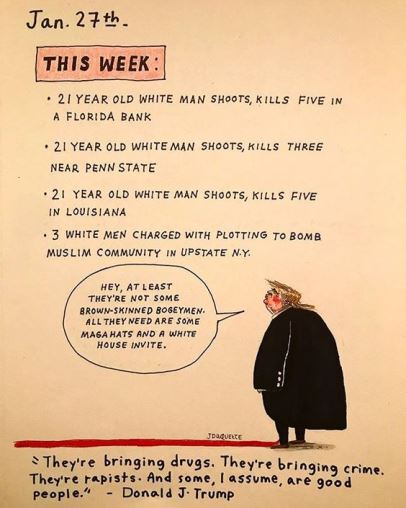 Jan. 27th.
THIS WEEK:
• 21 YEAR OLD WHITE MAN SHOOTS, KILLS FIVE IN
A FLORIDA BANK
• 21 YEAR OLD WHITE MAN SHOOTS, KILLS THREE
NEAR PENN STATE
• 21 YEAR OLD WHITE MAN SHOOTS, KILLS FIVE
IN LOUISIANA
• 3 WHITE MEN CHARGED WITH PLOTTING TO BOMB
MUSLIM COMMUNITY IN UPSTATE N.Y.
HEY, AT LEAST
THEY'RE NOT SOME
BROWN-SKINNED BOGEYMEN.
ALL THEY NEED ARE SOME
MAGA HATS AND A WHITE
HOUSE INVITE.
JDAQUELTE
"They're bringing drugs. They're bringing crime.
They're rapists. And some, I assume, are good
people." - Donald J. Trump